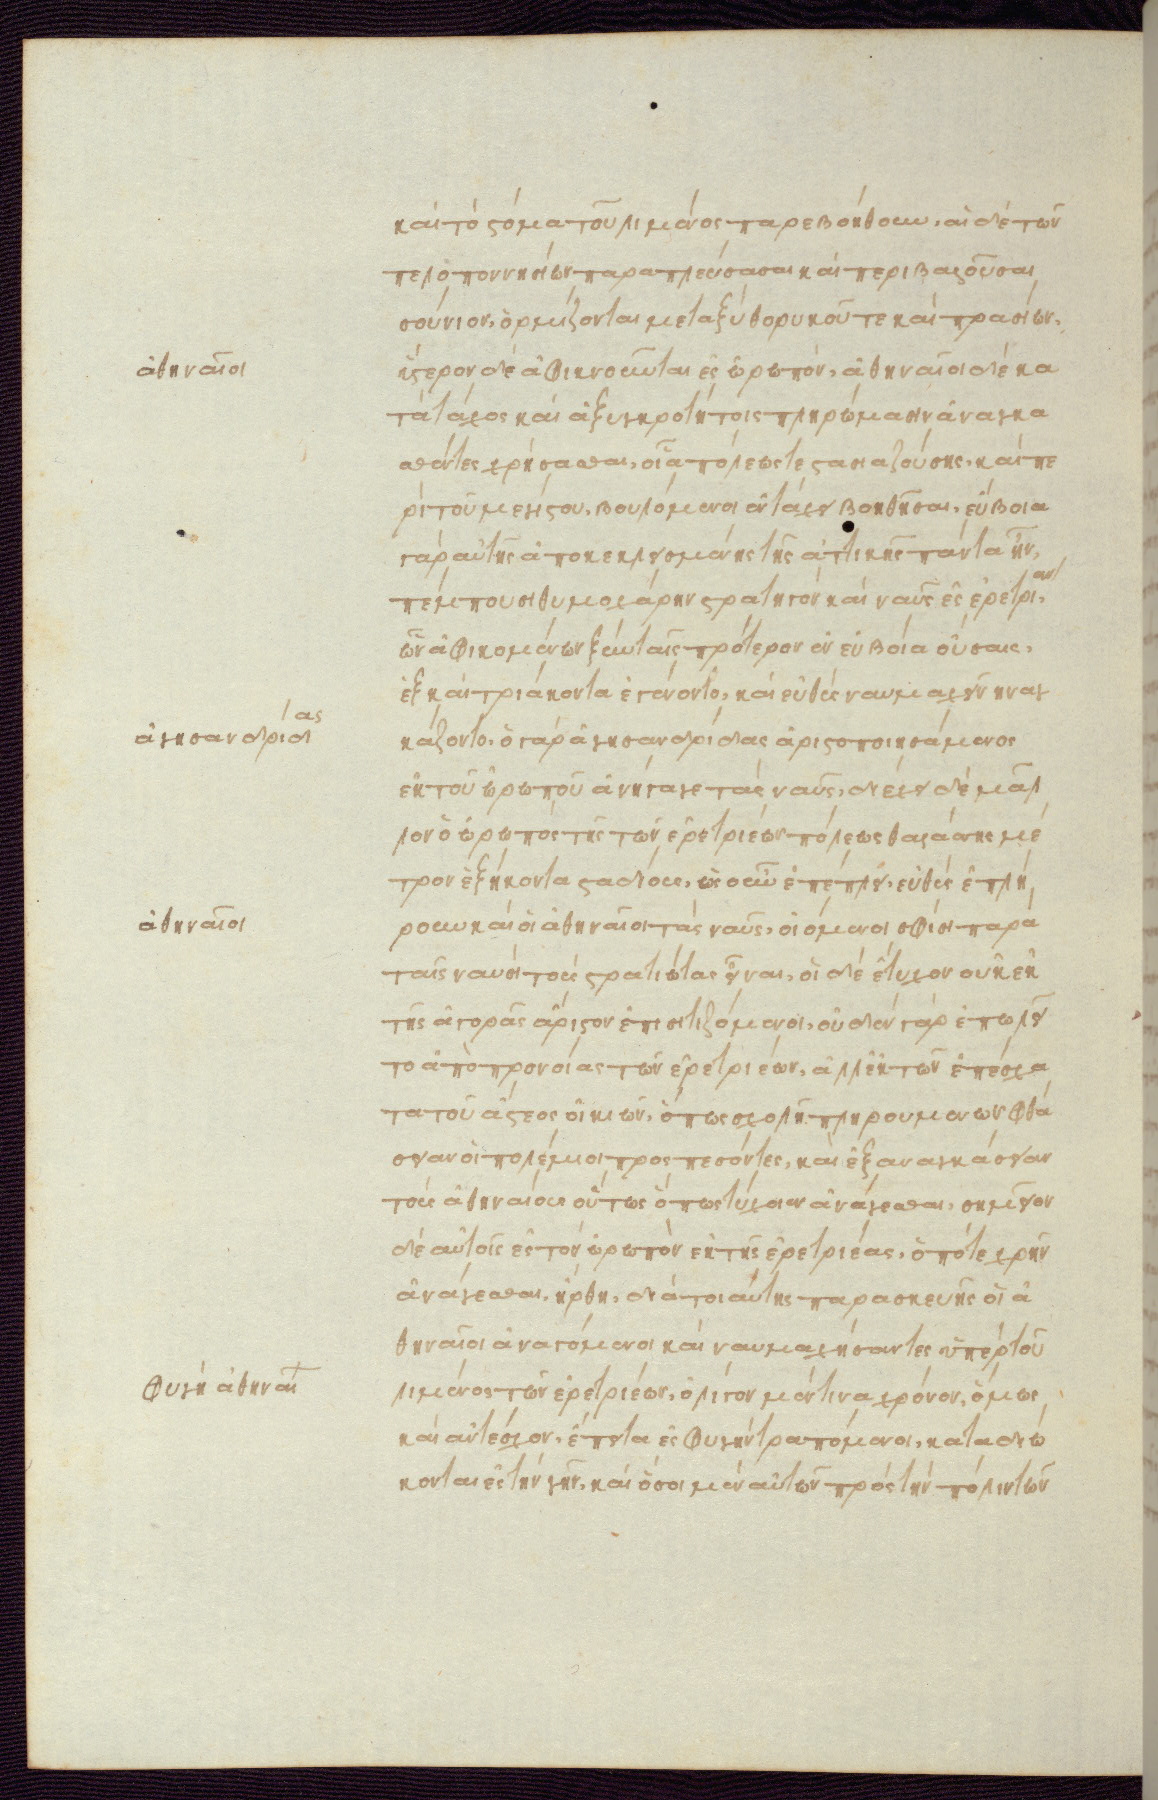 καὶ τὸ στόμα τοῦ λιμένος παρεβοήθουν. αἱ δὲ τῶν
πελοποννησίων παραπλεύσασαι καὶ περιβαλοῦσαι
σούνιον, ὁρμίζονται μεταξὺ θορυκοῦ τε καὶ πρασιῶν,
ἀθηναῖοι
ὕστερον δὲ ἀφικνοῦνται ἐς ὠρωπόν, ἀθηναῖοι δὲ κα
τὰ τάχος καὶ ἀξυγκροτήτοις πληρώμασιν ἀναγκα
σθέντες χρήσασθαι, οἷα πόλεώς τε στασιαζούσης, καὶ πε
ρὶ τοῦ μεγίστου, βουλόμενοι ἐν τάχει βοηθῆσαι, εὔβοια
γὰρ αὐτῆς ἀποκεκλεισμένης τῆς ἀττικῆς πάντα ἦν,
πέμπουσι θυμοχάρην στρατηγὸν καὶ ναῦς ἐς ἐρέτριαν,
ὧν ἀφικομένων ξὺν ταῖς πρότερον ἐν εὐβοία οὔσαις,
ἓξ καὶ τριάκοντα ἐγένοντο, καὶ εὐθὺς ναυμαχεῖν ἠναγ
ἀγησανδρίδας
κάζοντο, ὁ γὰρ ἀγησανδρίδας ἀριστοποιησάμενος
ἐκ τοῦ ὠρωποῦ ἀνήγαγε τὰς ναῦς, ἀπέχει δὲ μάλ
λον ὁ ὠρωπὸς τῆς τῶν ἐρετριέων πόλεως θαλάσσης μέ
τρον ἑξήκοντα σταδίους, ὡς οὖν ἐπέπλει, εὐθὺς ἐπλή
ἀθηναῖοι
ρουν καὶ οἱ ἀθηναῖοι τὰς ναῦς, οἰόμενοι σφίσι παρὰ
ταῖς ναυσὶ τοὺς στρατιώτας εἶναι, οἱ δὲ ἔτυχον οὐκ ἐκ
τῆς ἀγορᾶς ἄριστον ἐπισιτιζόμενοι, οὐδὲν γὰρ ἐπωλεῖ
το ἀπὸ προνοίας τῶν ἐρετριέων, ἀλλ' ἐκ τῶν ἐπέσχα
τα τοῦ ἄστεος οἰκιῶν, ὅπως σχολῆ πληρουμένων φθά
σειαν οἱ πολέμιοι προσπεσόντες, καὶ ἐξαναγκάσειαν
τοὺς ἀθηναίους οὕτως ὅπως τύχοιεν ἀνάγεσθαι, σημεῖον
δὲ αὐτοῖς ἐς τὸν ὠρωπὸν ἐκ τῆς ἐρετριέας, ὁπότε χρὴν
ἀνάγεσθαι, ἤρθη, διὰ τοιαύτης παρασκευῆς οἱ ἀ
θηναῖοι ἀναγόμενοι καὶ ναυμαχήσαντες ὑπὲρ τοῦ
φυγὴ ἀθηναί
λιμένος τῶν ἐρετριέων, ὀλίγον μέν τινα χρόνον, ὅμως
καὶ ἀντέσχον, ἔπειτα ἐς φυγὴν τραπόμενοι, καταδιώ
κονται ἐς τὴν γῆν, καὶ ὅσοι μὲν αὐτῶν πρὸς τὴν πόλιν τῶν